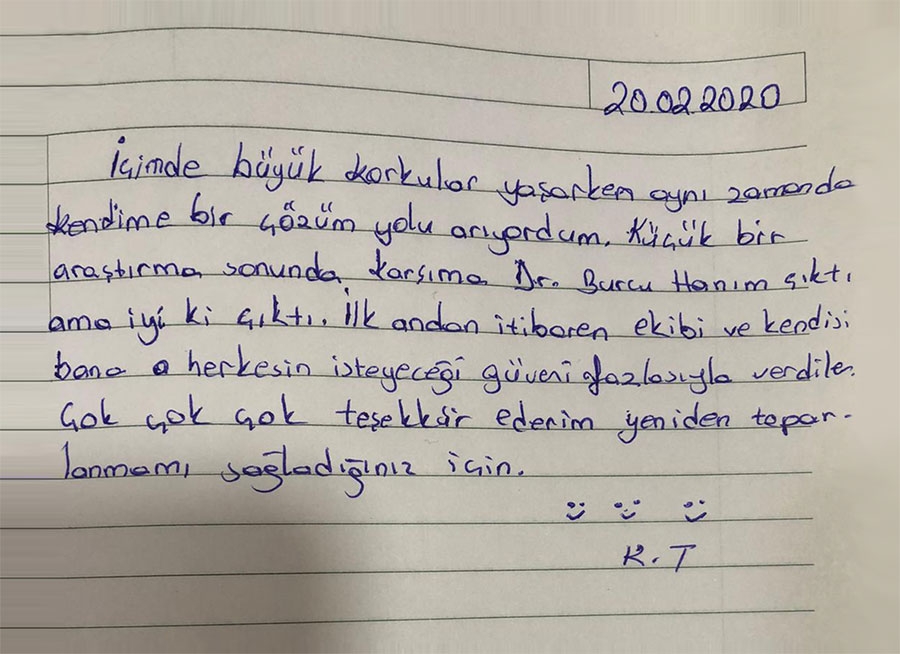 20.02.2020
İçimde büyük korkular yaşarken aynı zamanda
kendime bir çözüm yolu arıyordum. Küçük bir
araştırma sonunda karşıma Dr. Burcu Hanım çıktı
ama iyi ki çıktı. İlk andan itibaren ekibi ve kendisi
bana herkesin isteyeceği güveni fazlasıyla verdiler.
Çok çok çok teşekkür ederim yeniden topar-
lanmamı sağladığınız için.
K.T